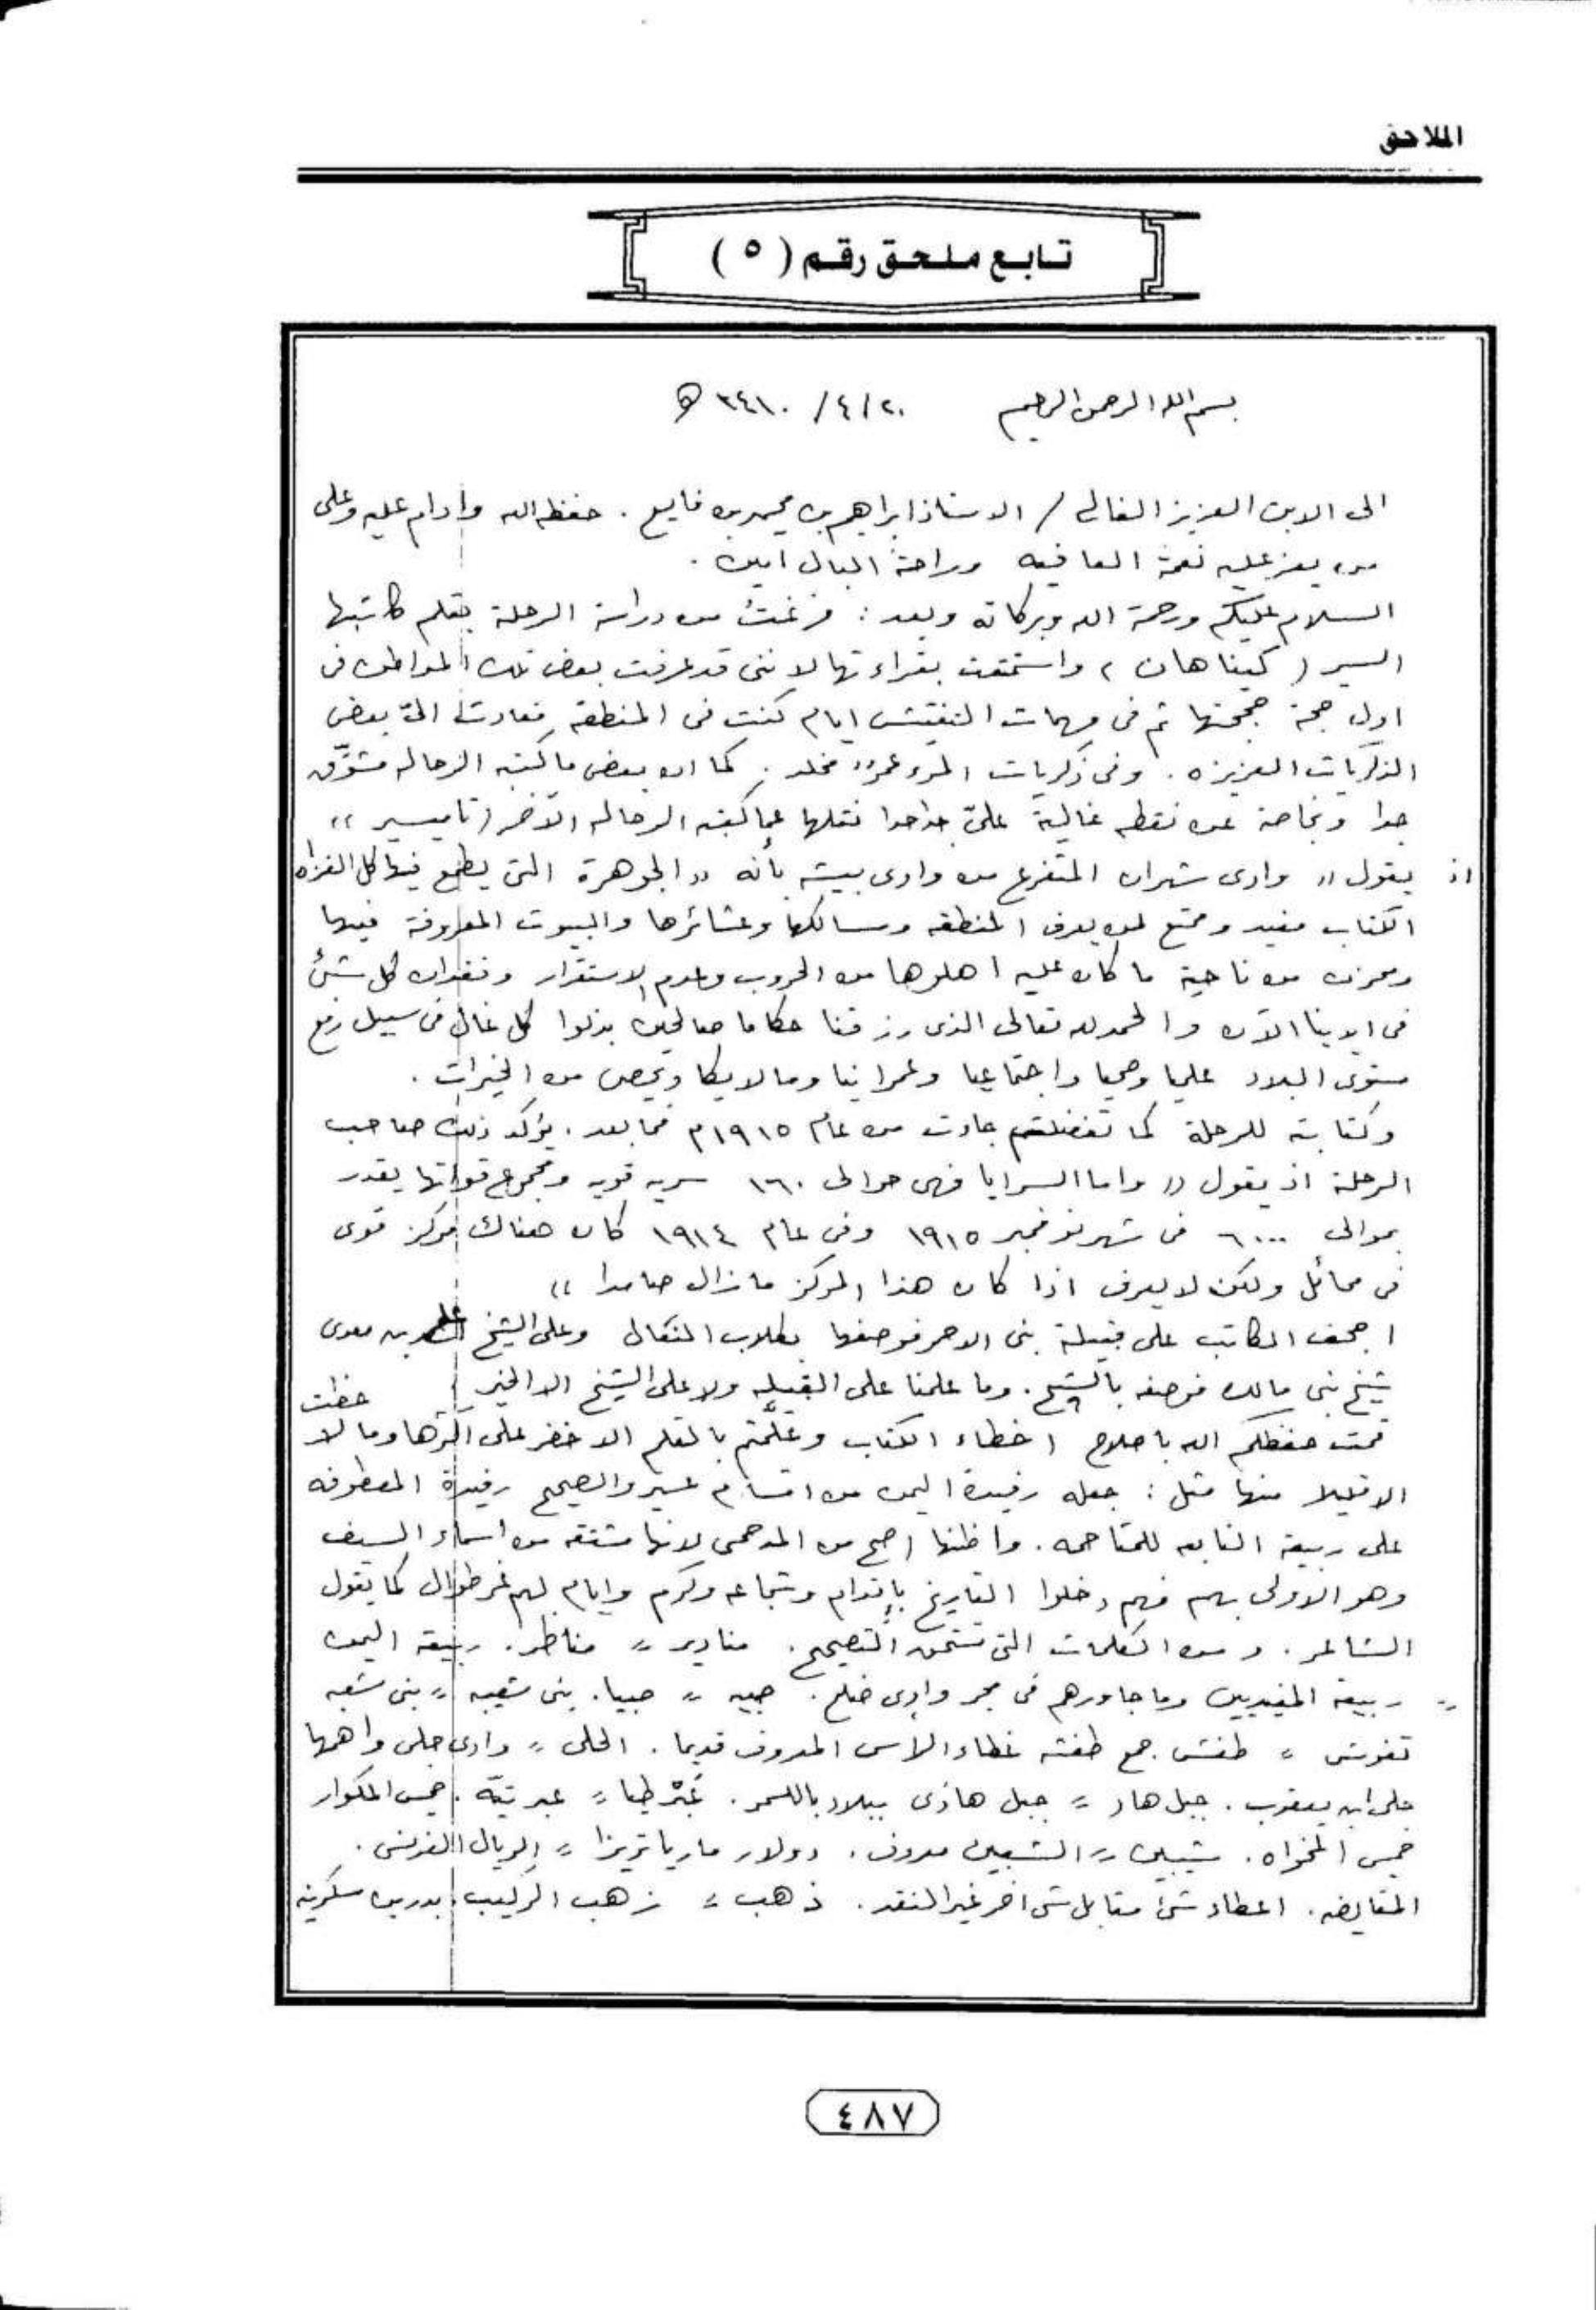 الملاحق
تابع ملحق رقم ( ٥ )
بسم الله الرحمن الرحيم ٢٠/٤/
الى الابن العزيز الغالي / الاستاذ ابراهيم بن محمد بن فايع . حفظه الله وادام عليه وعلى
من يعز عليه نعمة العافيه وراحة البال امين .
السلام عليكم ورحمة الله وبركاته وبعد : فرغت من دراسة الرحلة بقلم كاتبها
السير ( كيناهان ) واستمتعت بقراءتها لانني قد عرفت بعض تلك المواطن في
اول حجة حججتها ثم في مهمات التفتيش ايام كنت في المنطقه فعادت الىّ بعض
الذكريات العزيزه . وفى ذكريات المرء عمرٌ مخلد . كما ان بعض ما كتبه الرحاله مشوّق
جدا وبخاصة عن نقطه غالية علىّ جدا جدا نقلها عما كتبه الرحاله الآخر ( تاميسير ))
اذ يقول (( وادى شهران المتفرع من وادى بيشه بأنه (( الجوهرة التى يطمع فيها كل الغزاه
الكتاب مفيد وممتع لمن يعرف المنطقه ومسالكها وعشائرها والبيوت المعروفة فيها
ومحزن من ناحية ما كان عليه اهلوها من الحروب وعدم الاستقرار وفقدان كل شئ
فى ايدينا الآن والحمد لله تعالى الذى رزقنا حكاما صالحين بذلوا كل غال فى سبيل رفع
مستوى البلاد علميا وصحيا واجتماعيا وعمرانيا ومالا يكاد يحصى من الخيرات .
وكتابته للرحلة كما تفضلتم جاءت من عام ١٩١٥م فما بعد . يؤكد ذلك صاحب
الرحلة اذ يقول (( واما السرايا فهى حوالى ١٦٠ سريه قويه ومجموع قواتها يقدر
بحوالى ٦٠٠٠ فى شهر نوفمبر ١٩١٥ وفى عام ١٩١٤ كان هناك مركز قوى
فى محائل ولكن لا يعرف اذا كان هذا المركز مازال صامدا ))
اجحف الكاتب على قبيلة بنى الاحمر فوصفها بكلاب المنكال وعلى الشيخ على بن معدى
شيخ بنى مالك فوصفه بالشح . وما علمنا على القبيله ولا على الشيخ الا الخير
قمت حفظكم الله باصلاح اخطاء الكتاب وعلّمتم بالقلم الاخضر على اكثرها وما لا حظت
الا قليلا منها مثل : جعله رفيدة اليمن من اقسام عسير والصحيح رفيدة المعطوفه
على ربيعة التابعه للمتاحمه . واظنها اصح من المدحمى لانها مشتقه من اسماء السيف
وهو الاولى بهم فهم دخلوا التاريخ بإقدام وشجاعه وكرم وايام لهم غر طوال كما يقول
الشاعر . ومن الكلمات التى تستحق التصحيح . مناديد = مناظر . ربيعة اليمن
= ربيعة المقيديين وما جاورهم فى مجر وادى ضلع . جبيه = جبيا . بنى شعيبه = بنى شعبه
تفوش = طفش . جمع طفشه غطاء الرأس المعروف قديما . الحلى = وادى حلى واهمها
حلى ابن يعقوب . جبل هاد = جبل هاذى ببلاد باللسمر . عَبْر طيا = عبر تيّه . خميس المكوار
خميس المخواه . شيبين = الشعبين معروف . دولار ماريا تريزا = الريال الفرنسى .
المقايضه . اعطاء شئ مقابل شئ اخر غير النقد . ذهب = زهب الركيب
٤٨٧